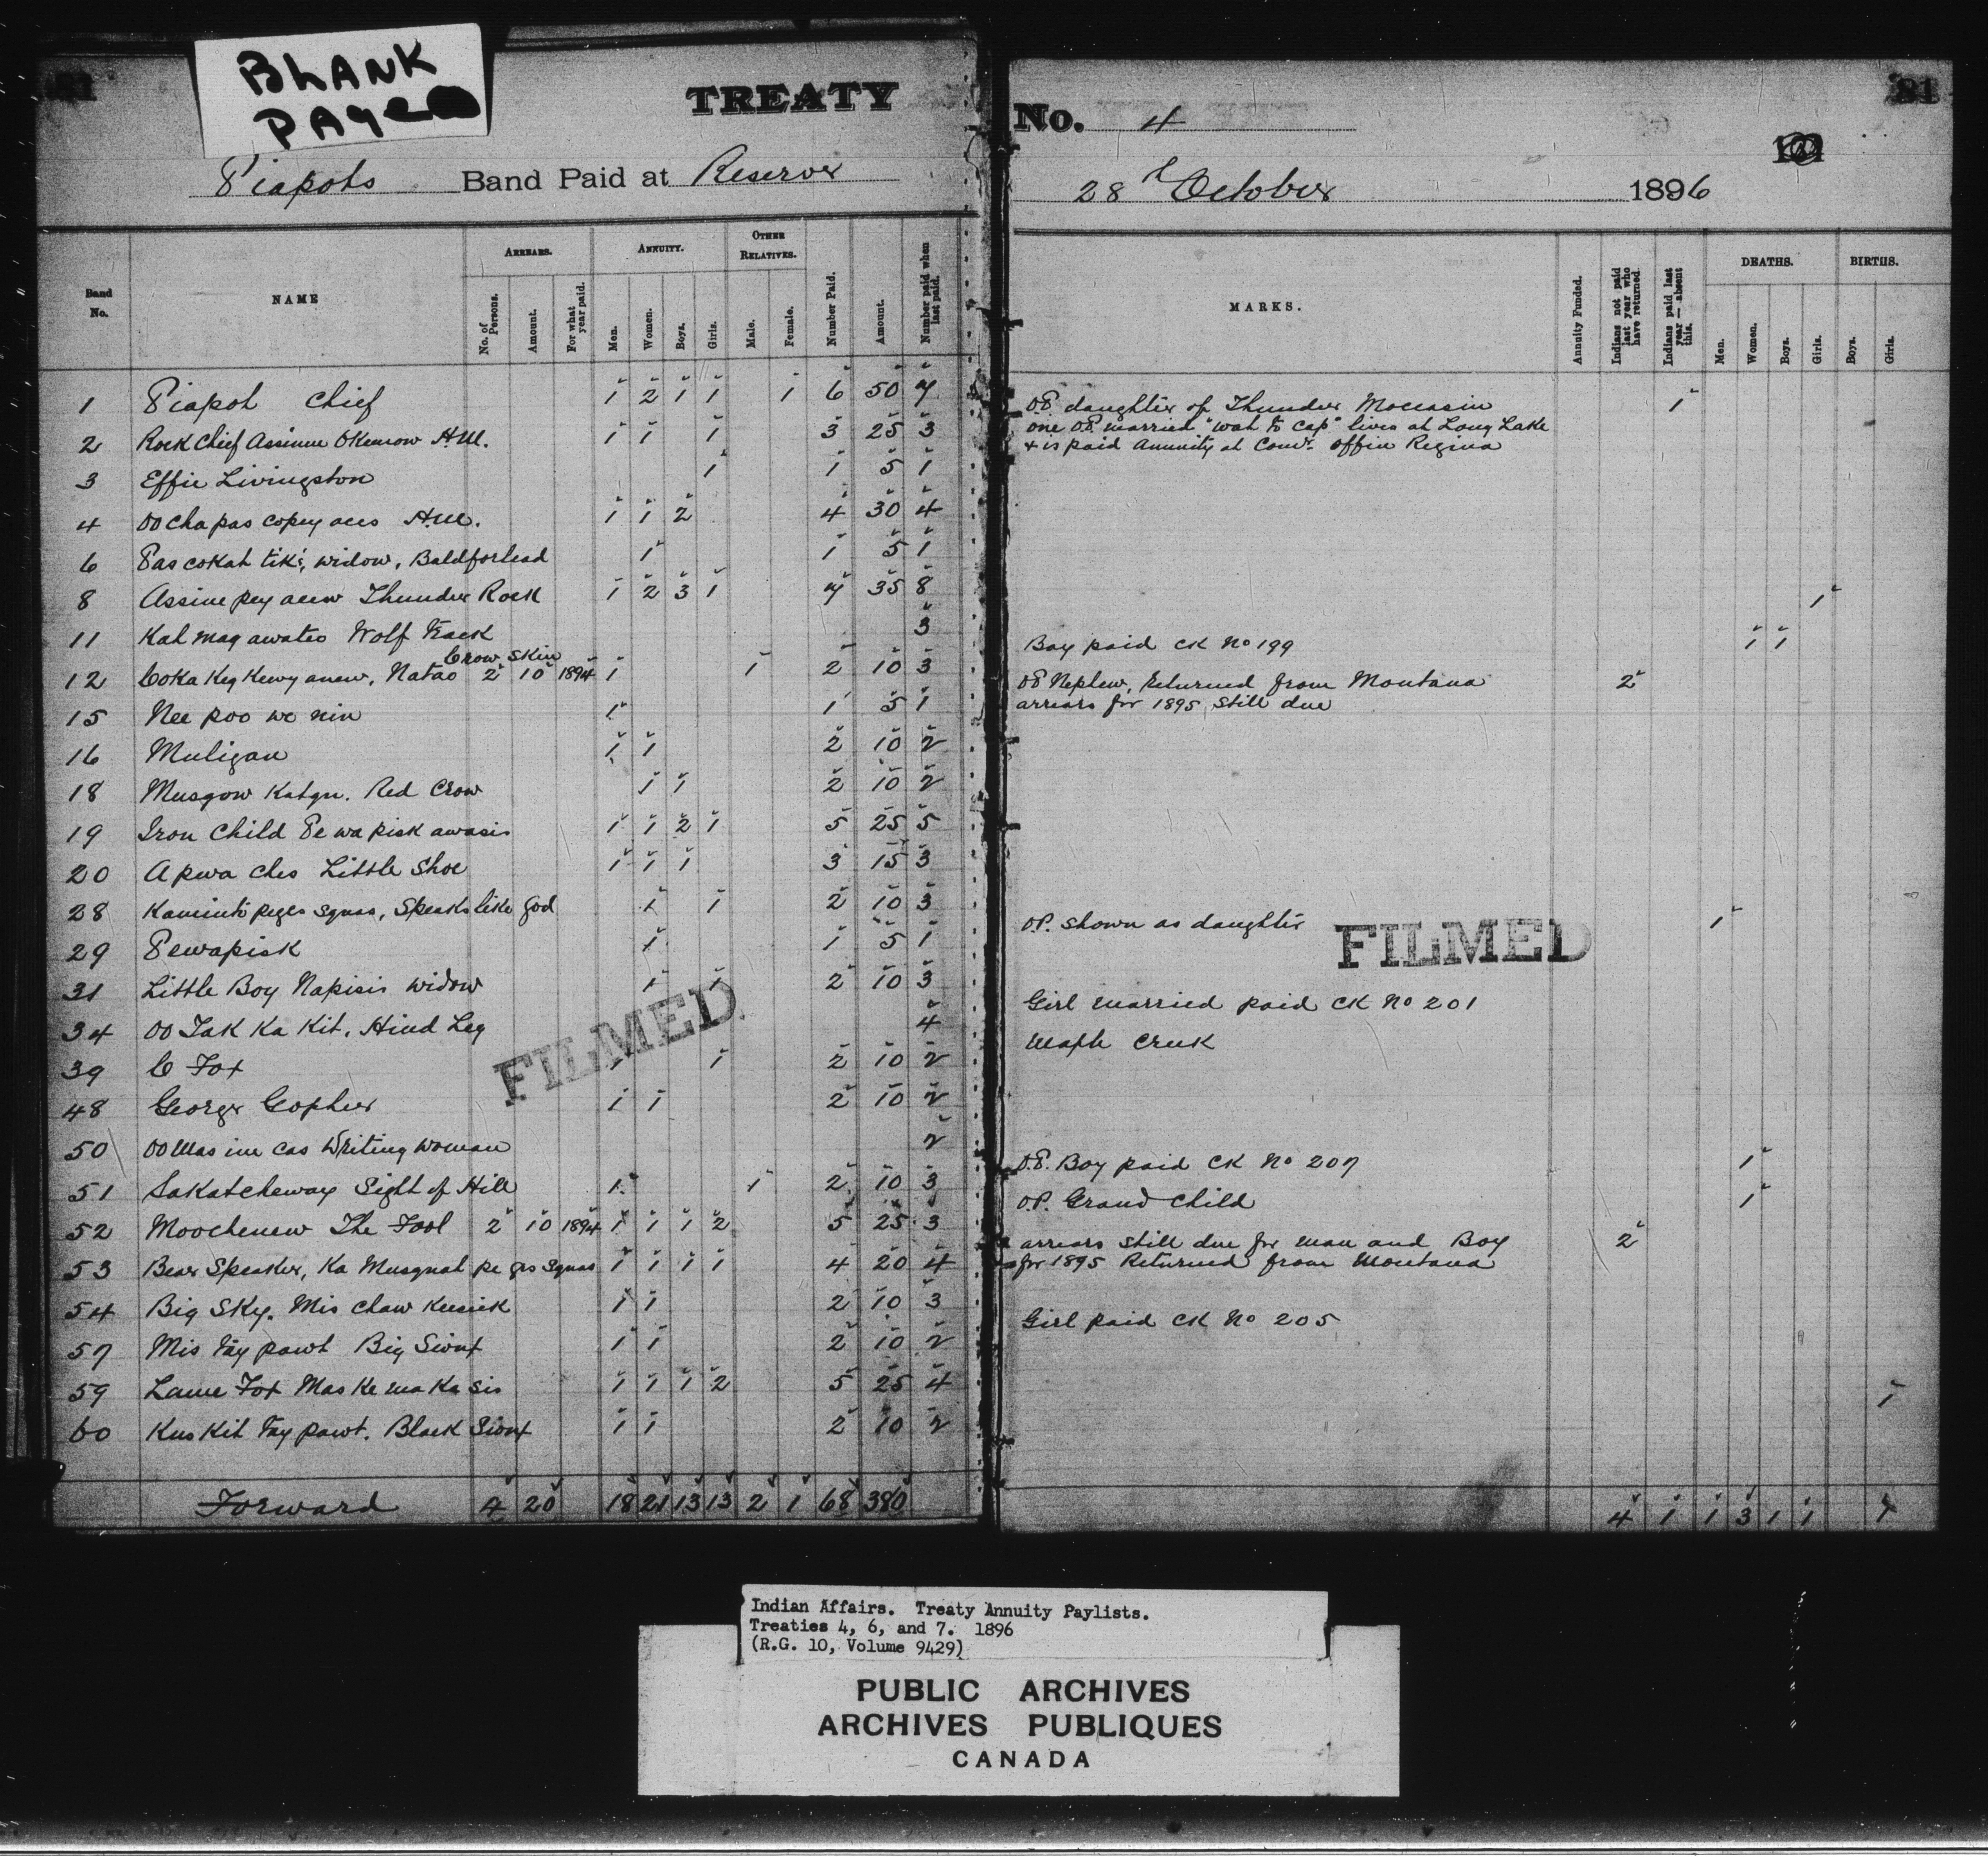 BLANK
PAGE
81
TREATY
Piapots Band Paid at Reserve
Band No.
NAME
ARREARS.
No. of Persons.
Amount.
For what year paid.
ANNUITY.
Men.
Women.
Boys.
Girls.
OTHER RELATIVES.
Male.
Female.
Number Paid.
Amount.
Number paid when last paid.
1 Piapot Chief 1 2 1 1 1 6 50 7
2 Rock Chief Assinne Okemow H.M. 1 1 1 3 25 3
3 Effie Livingston 1 1 5 1
4 OO cha pas copey aces H.M. 1 1 2 4 30 4
6 Pas cokah tik's, widow, Baldforhead 1 1 5 1
8 Assine pey acew Thunder Rock 1 2 3 1 7 35 8
11 Kah mag awates Wolf Track 3
Crow Skin
12 Coka Keg Kewy anew, Natao 2 10 1894 1 1 2 10 3
15 Nee poo we nin 1 1 5 1
16 Muligan 1 1 2 10 2
18 Musgow Katqu. Red Crow 1 1 2 10 2
19 Iron Child Pe wa pisk awasis 1 1 2 1 5 25 5
20 Apwa ches Little Shoe 1 1 1 3 15 3
28 Kaminto peges squas, Speaks like God 1 1 2 10 3
29 Pewapisk 1 1 5 1
31 Little Boy Napisis widow 1 1 2 10 3
34 OO Tak Ka Kit, Hind Leg 4
39 C Fox 1 1 2 10 2
48 George Gopher 1 1 2 10 2
50 OO Mas ine cas Writing woman 2
51 Sakatcheway Sight of Hill 1 1 2 10 3
52 Moochenew The Fool 2 10 1894 1 1 1 2 5 25 3
53 Bear Speaker, Ka Musquah pe ges squas 1 1 1 1 4 20 4
54 Big Sky. Mis chaw Keesick 1 1 2 10 3
57 Mis tay pawt Big Sioux 1 1 2 10 2
59 Lame Fox Mas Ke ma Ka sis 1 1 1 2 5 25 4
60 Kus Kit tay pawt. Black Sioux 1 1 2 10 2
Forward 4 20 18 21 13 13 2 1 68 380
FILMED
81
No. 4
28th October 1896
MARKS.
Annuity Funded.
Indians not paid last year who have returned.
Indians paid last year — absent this.
DEATHS.
Men.
Women.
Boys.
Girls.
BIRTHS.
Boys.
Girls.
OP daughter of Thunder Moccasin 1
one OP. married "wah to cap" lives at Long Lake
& is paid Annuity at Comr. Office Regina
1
Boy paid CK No 199 1 1
OP Nephew, Returned from Montana 2
arrears for 1895 still due
O.P. shown as daughter 1
FILMED
Girl married paid CK No 201
Maple Creek
O.P. Boy paid CK No 207 1
O.P. Grand Child 1
arrears still due for man and Boy 2
for 1895 Returned from Montana
Girl paid CK No 205
1
4 1 1 3 1 1 1
Indian Affairs. Treaty Annuity Paylists.
Treaties 4, 6, and 7. 1896
(R.G. 10, Volume 9429)
PUBLIC ARCHIVES
ARCHIVES PUBLIQUES
CANADA